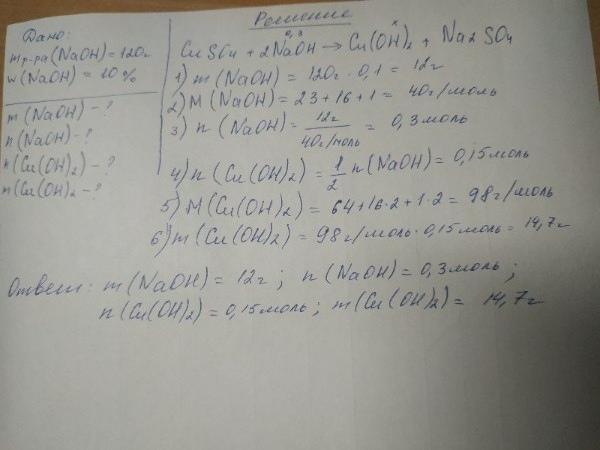 Решение
Дано:
mр-ра(NaOH)=120г
w(NaOH) = 10%
m(NaOH) - ?
n(NaOH) - ?
n(Cu(OH)2) - ?
m(Cu(OH)2 - ?
0,3 x
CuSO4 + 2NaOH → Cu(OH)2 + Na2SO4
1) m(NaOH) = 120г · 0,1 = 12г
2) M(NaOH) = 23+16+1 = 40г/моль
3) n(NaOH) = 12г / 40г/моль = 0,3моль
4) n(Cu(OH)2) = 1/2 n(NaOH) = 0,15моль
5) M(Cu(OH)2) = 64+16·2+1·2 = 98г/моль
6) m(Cu(OH)2) = 98г/моль · 0,15моль = 14,7г
Ответ: m(NaOH) = 12г ; n(NaOH) = 0,3моль ;
n(Cu(OH)2) = 0,15моль ; m(Cu(OH)2) = 14,7г